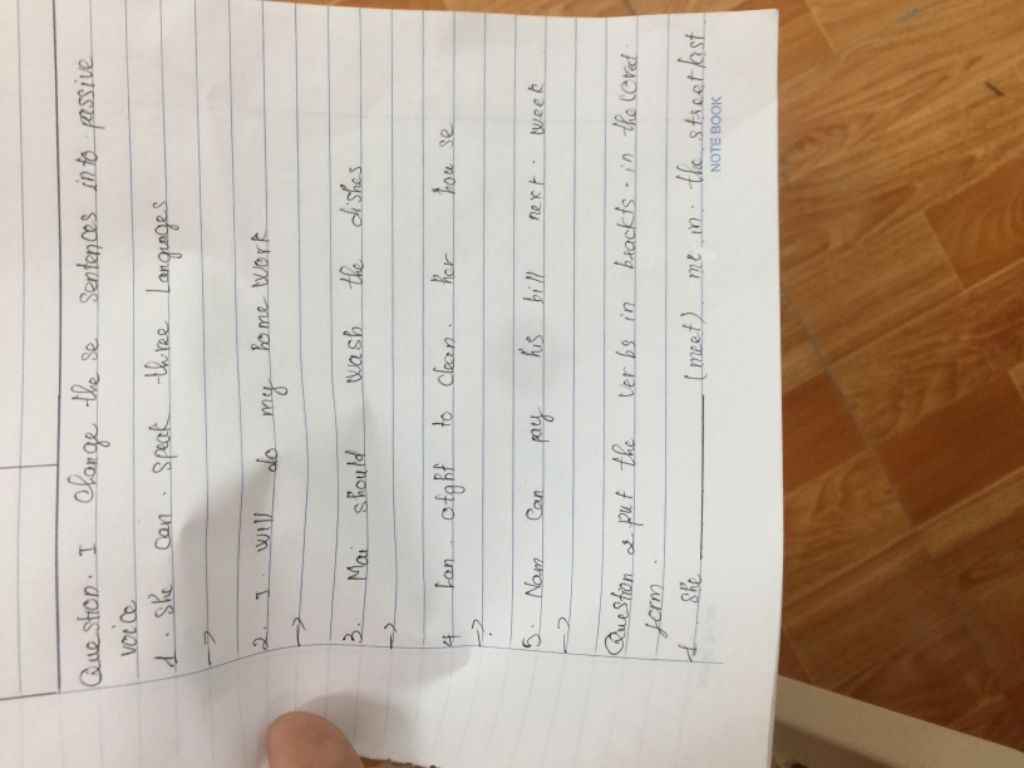 Question. I Change the se sentences into passive
voice
1. she can. speak three Languages
→
2. I. will do my home work
→
3. Mai should wash the dishes
→
4 Lan. otght to clean. her hou se
→.
5. Nam Can pay his bill next. week
→
Question 2 put the verbs in brackts. in the
form.
1 she ________ (meet) me in. the street last
NOTE BOOK